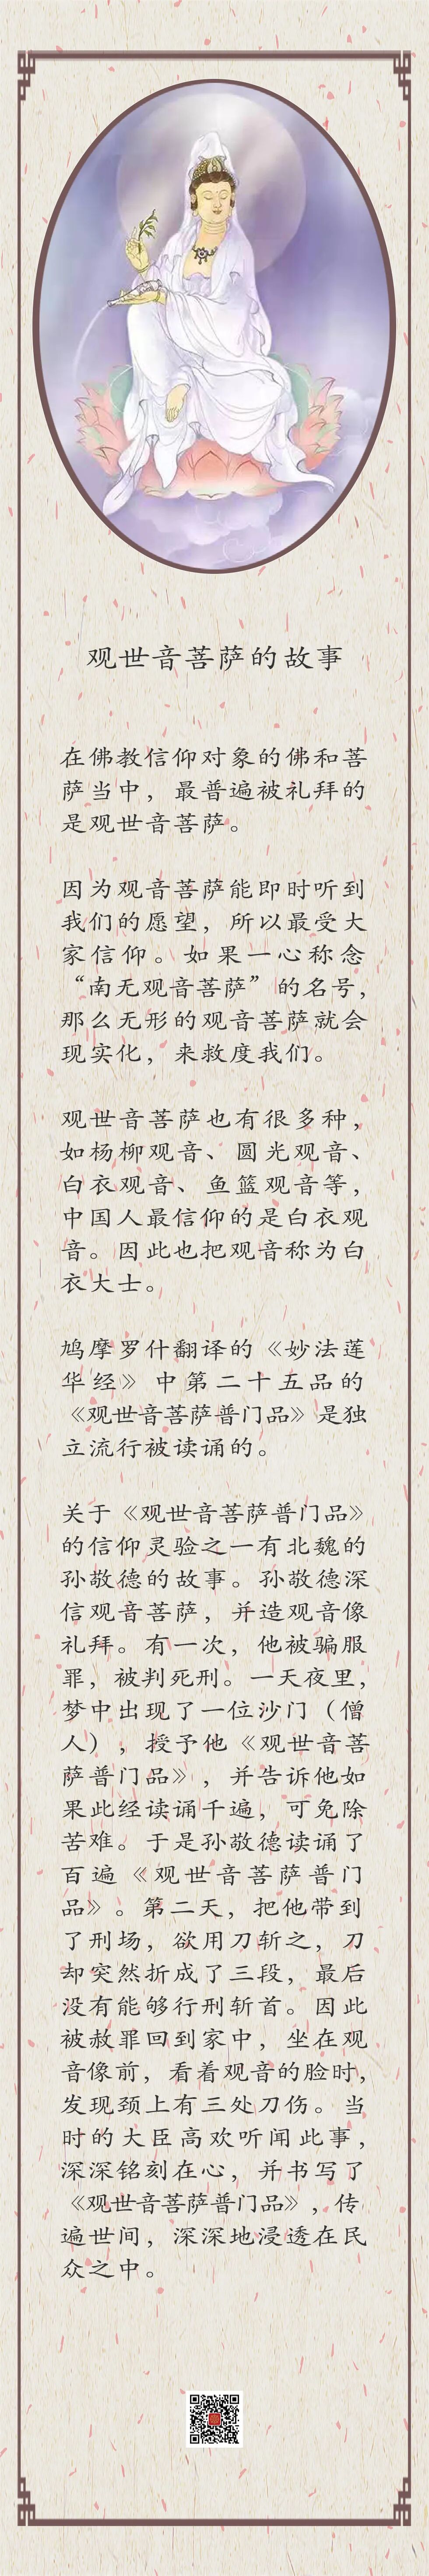 观世音菩萨的故事
在佛教信仰对象的佛和菩
萨当中，最普遍被礼拜的
是观世音菩萨。
因为观音菩萨能即时听到
我们的愿望，所以最受大
家信仰。如果一心称念
“南无观音菩萨”的名号，
那么无形的观音菩萨就会
现实化，来救度我们。
观世音菩萨也有很多种，
如杨柳观音、圆光观音、
白衣观音、鱼篮观音等，
中国人最信仰的是白衣观
音。因此也把观音称为白
衣大士。
鸠摩罗什翻译的《妙法莲
华经》中第二十五品的
《观世音菩萨普门品》是独
立流行被读诵的。
关于《观世音菩萨普门品》
的信仰灵验之一有北魏的
孙敬德的故事。孙敬德深
信观音菩萨，并造观音像
礼拜。有一次，他被骗服
罪，被判死刑。一天夜里，
梦中出现了一位沙门（僧
人），授予他《观世音菩
萨普门品》，并告诉他如
果此经读诵千遍，可免除
苦难。于是孙敬德读诵了
百遍《观世音菩萨普门
品》。第二天，把他带到
了刑场，欲用刀斩之，刀
却突然折成了三段，最后
没有能够行刑斩首。因此
被赦罪回到家中，坐在观
音像前，看着观音的脸时，
发现颈上有三处刀伤。当
时的大臣高欢听闻此事，
深深铭刻在心，并书写了
《观世音菩萨普门品》，传
遍世间，深深地浸透在民
众之中。